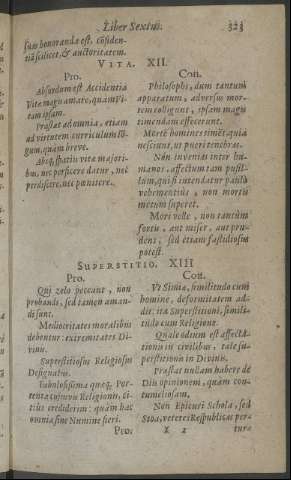 Liber Sextus. 323
sum honorandæ est, confiden-
tiâ scilicet, & auctoritatem.
VITA. XII.
Pro.
Absurdum est Accidentia
Vitæ magis amare, quàm Vi-
tam ipsam.
Præstat ad omnia, etiam
ad virtutem curriculum lõ-
gum, quàm breve.
Absq; spatiis vitæ majori-
bus, nec perficere datur, nec
perdiscere, nec pœnitere.
Con.
Philosophi, dum tantum
apparatum, adversus mor-
tem colligunt, ipsam magis
timendam effecerunt.
Mortē homines timēt, quia
nesciunt, ut pueri tenebras.
Non invenias inter hu-
manos, affectum tam pusil-
lum, qui si intendatur paulò
vehementius, non mortis
metum superet.
Mori velle, non tantùm
fortis, aut miser, aut pru-
dens, sed etiam fastidiosus
potest.
SUPERSTITIO. XIII
Pro.
Qui zelo peccant, non
probandi, sed tamen aman-
di sunt.
Mediocritates moralibus
debentur: extremitates Di-
vinis.
Superstitiosus Religiosus
Designatus.
Fabulosissima quæq; Por-
tenta cujusvis Religionis, ci-
tius crediderim: quàm hæc
omnia sine Numine fieri.
Pro.
Con.
Vt Simiæ, similitudo cum
homine, deformitatem ad-
dit: ita Superstitioni, simili-
tudo cum Religione.
Quale odium est affectã-
tionis in civilibus, tale su-
perstitionis in Divinis.
Præstat nullam habere de
Diis opinionem, quàm con-
tumeliosam.
Non Epicuri Schola, sed
Stoa, veteres Respublicas per-
X 2 tur-